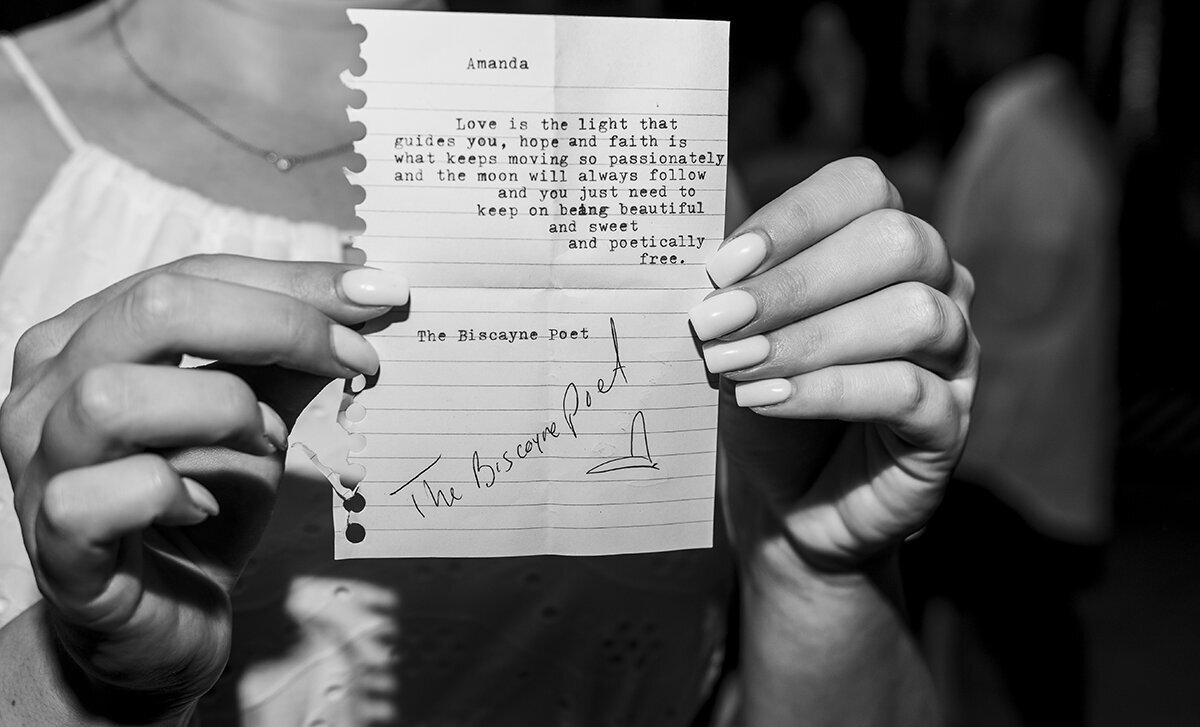 Amanda
Love is the light that
guides you, hope and faith is
what keeps moving so passionately
and the moon will always follow
and you just need to
keep on being beautiful
and sweet
and poetically
free.
The Biscayne Poet
The Biscayne Poet